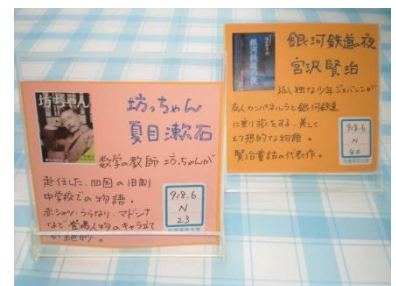 坊っちゃん
坊っちゃん
夏目漱石
数学の教師 坊っちゃんが
赴任した、四国の旧制
中学校での物語。
赤シャツ、うらなり、マドンナ
など登場人物のキャラ立て
が絶妙。
918.6
N
23
銀河鉄道の夜
銀河鉄道の夜
宮沢賢治
孤独な少年ジョバンニが
友人カンパネルラと銀河鉄道
に乗り旅をする、美しく
幻想的な物語。
賢治童話の代表作。
918.6
N
40